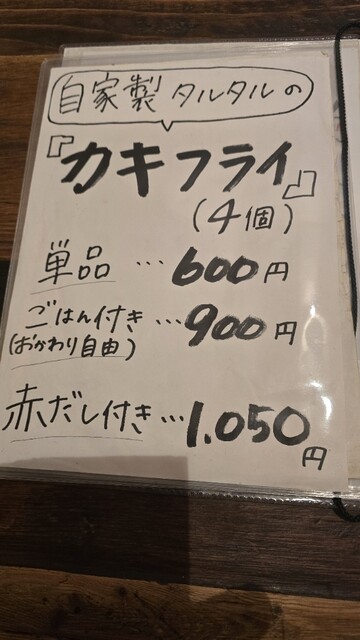 自家製タルタルの
『カキフライ』
(4個)
単品…600円
ごはん付き…900円
(おかわり自由)
赤だし付き…1.050円